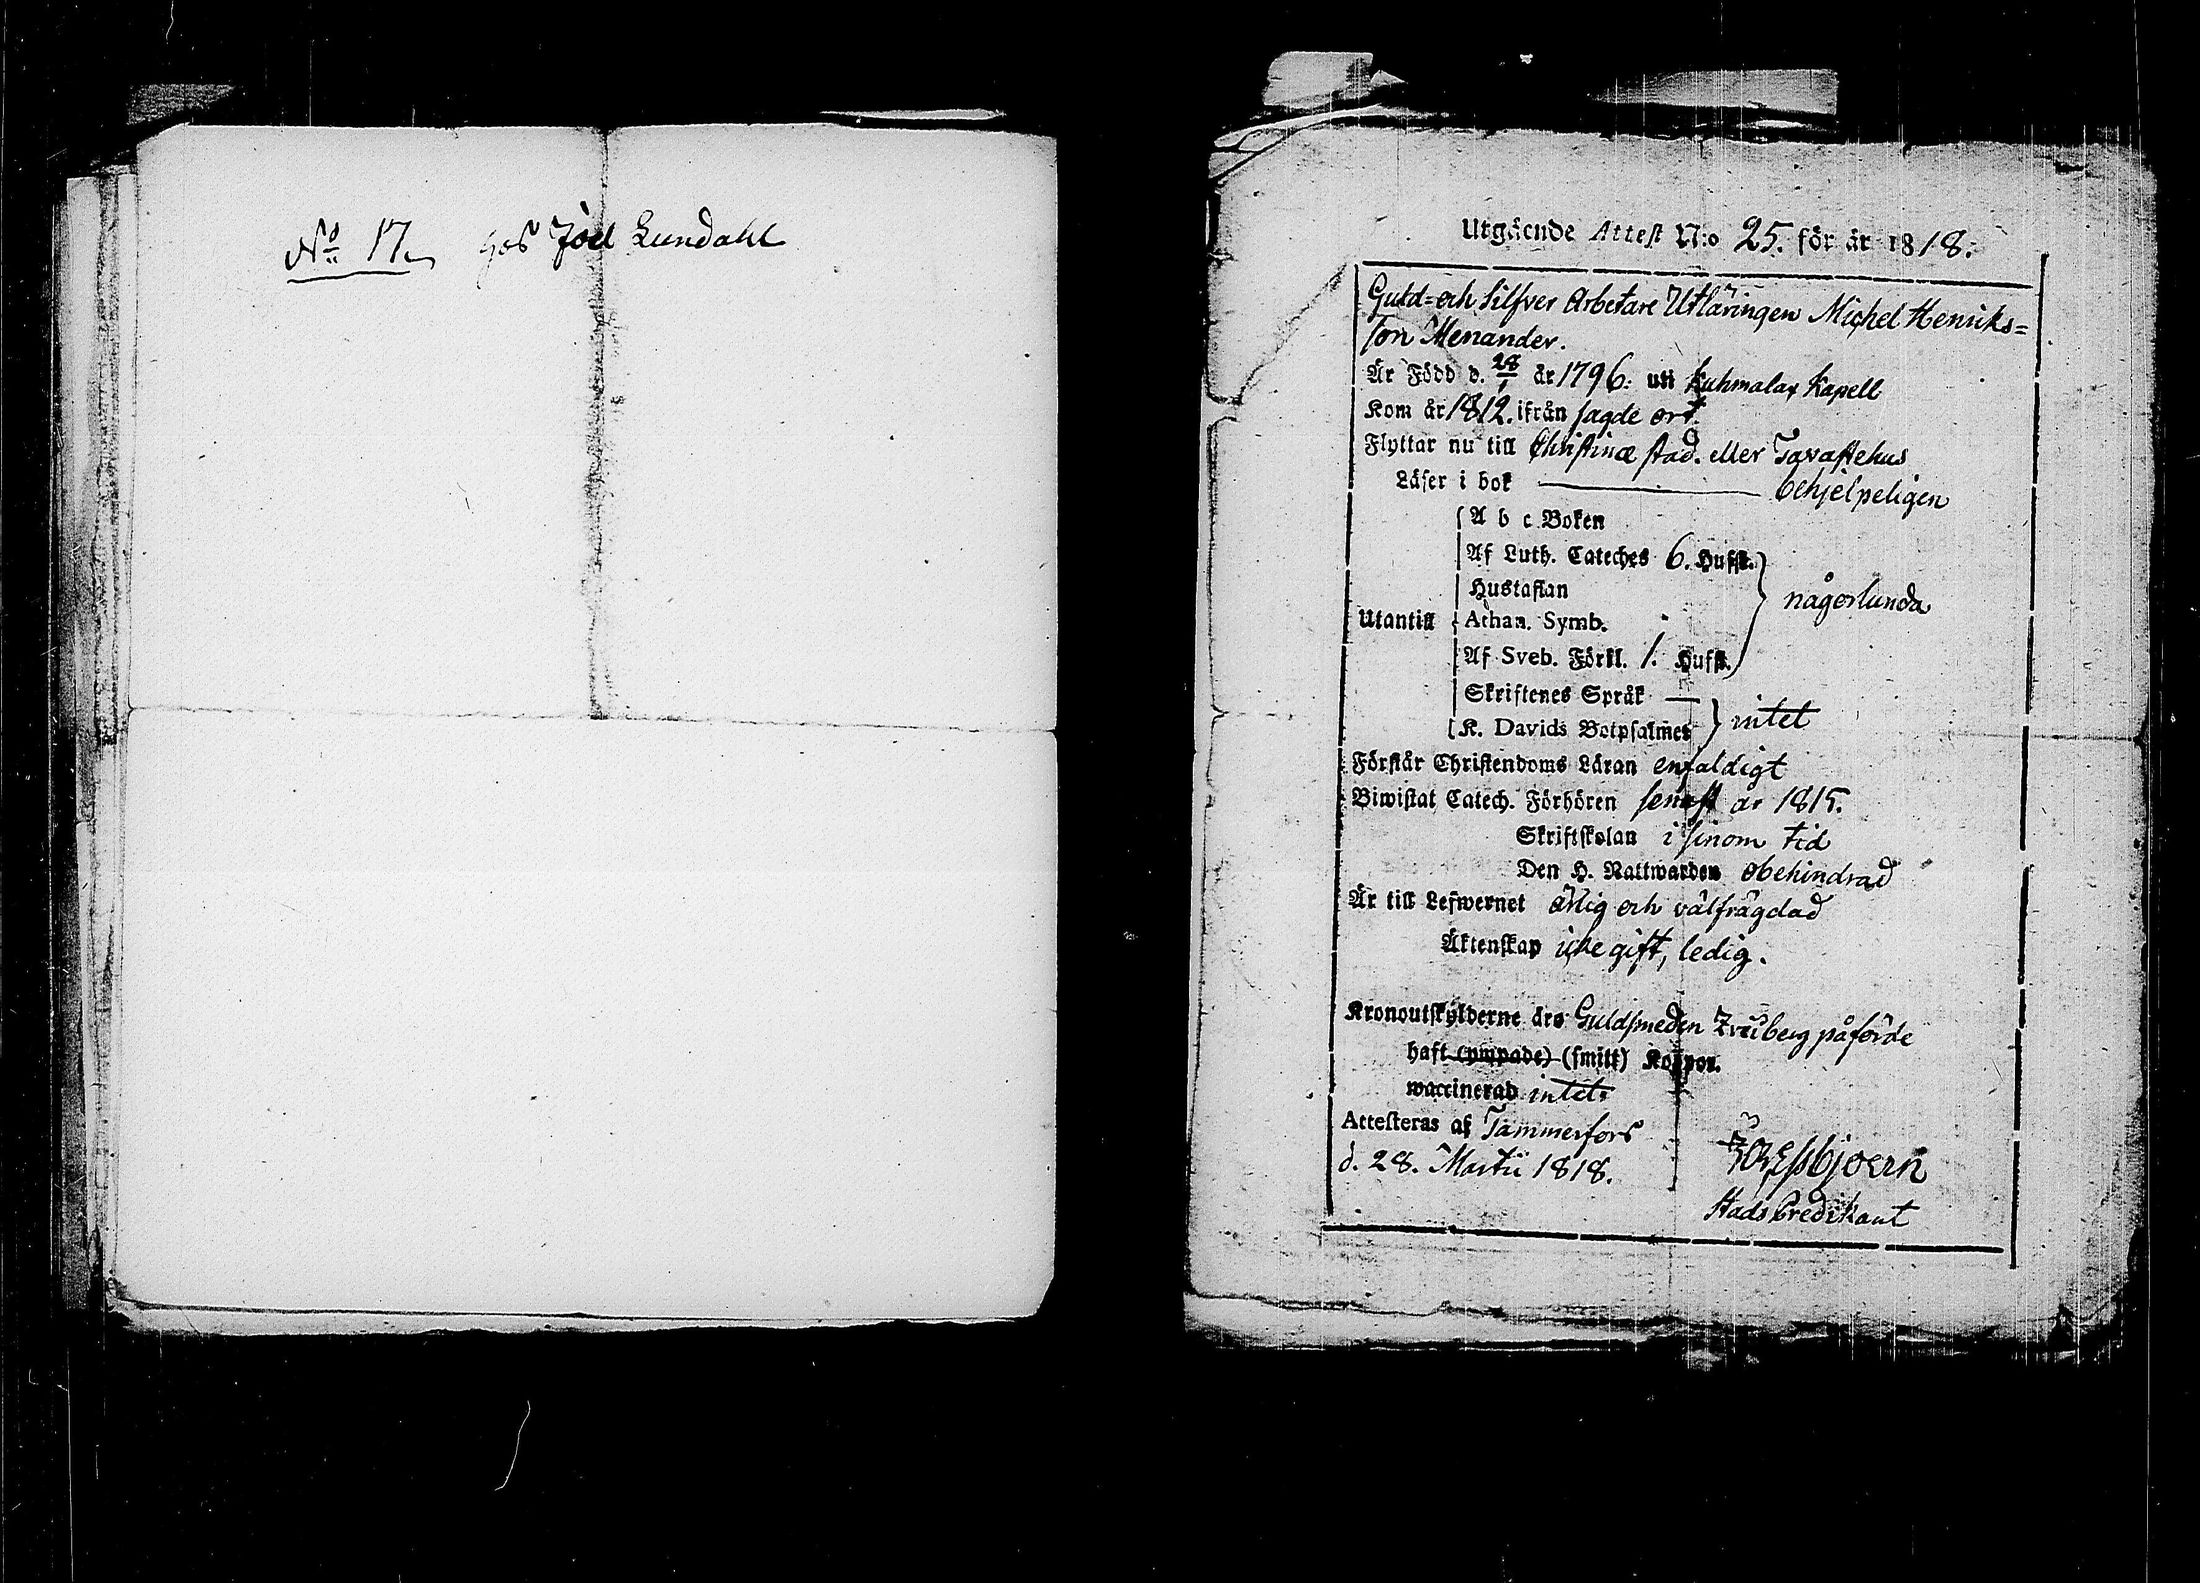 No 17. hos Joel Lundahl
Utgående Attest N:o 25. för år 1818.
Guld= och Silfver Arbetare Utläringen Michel Henriks=
son Menander.
Är Född d. 28/1 år 1796. uti Kuhmalax Kapell
Kom år 1812. ifrån sagde ort.
Flyttar nu till Christinæ stad. eller Tavastehus
Läser i bok — behjelpeligen
A b c Boken
Af Luth. Cateches 6. Hufst.
Hustaflan
någorlunda
Utantill Athan. Symb.
Af Sveb. Förkl. 1. Hufst.
Skriftenes Språk —
intet
K. Davids Botpsalmer
Förstår Christendoms Läran enfaldigt
Biwistat Catech. Förhören senast år 1815.
Skriftskolan i sinom tid
Den H. Nattwarden obehindrad
Är till Lefwernet ärlig och välfrägdad
Äktenskap icke gift, ledig.
Kronoutskylderne äro Guldsmeden påförde
haft (ympade) (smitt) Koppor.
waccinerad intet.
Attesteras af Tammerfors
d. 28. Martii 1818.
Essbjoern
Stads Predikant